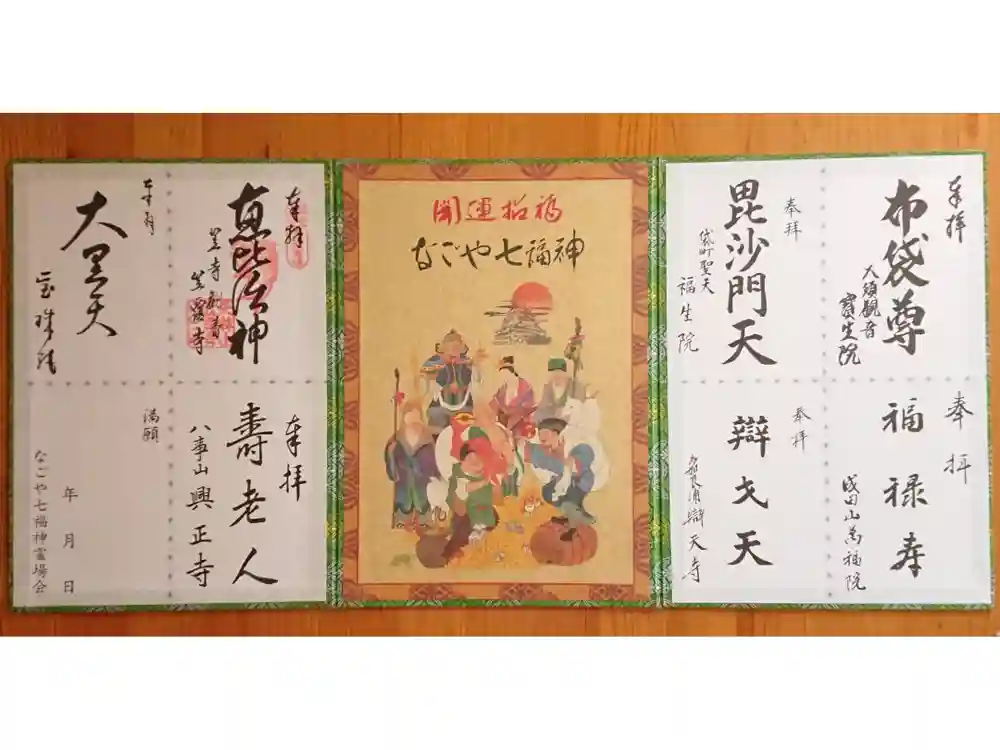 奉拝
布袋尊
大須観音
寶生院
奉拝
福禄寿
成田山萬福院
奉拝
毘沙門天
袋町聖天
福生院
奉拝
辯才天
辯天寺
開運招福
なごや七福神
奉拝
恵比須神
笠寺観音
笠覆寺
奉拝
壽老人
八事山
興正寺
奉拝
大黒天
宝珠院
満願
年 月 日
なごや七福神霊場会